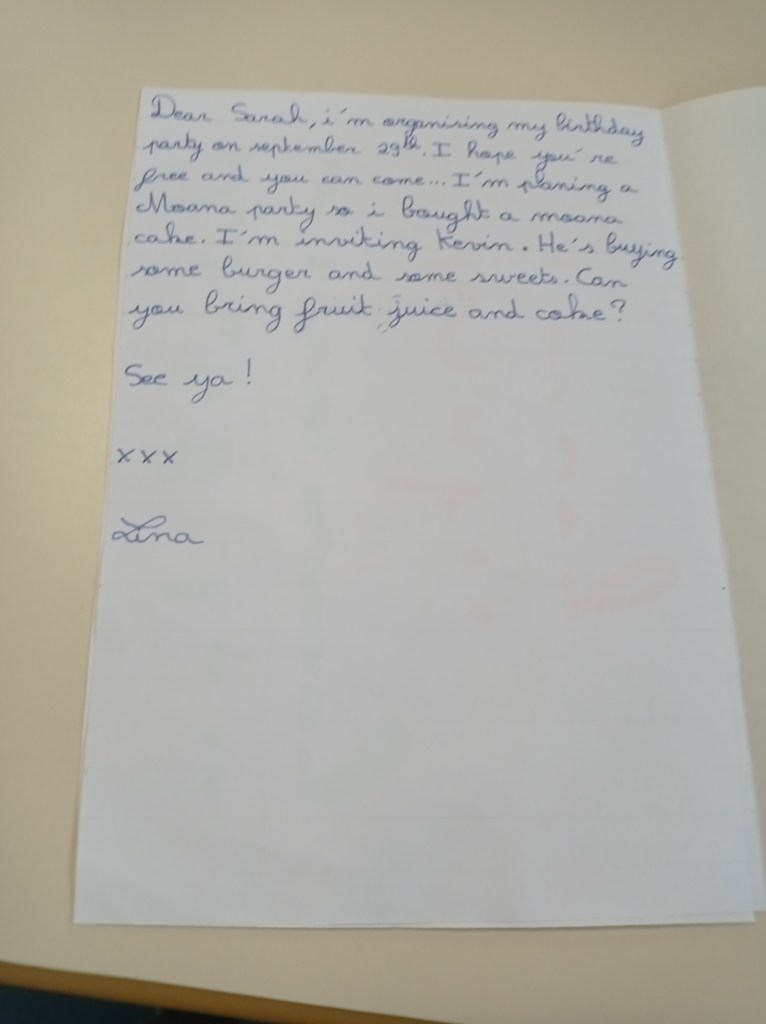 Dear Sarah, i'm organising my birthday
party on september 29th. I hope you're
free and you can come... I'm planing a
Moana party so i bought a moana
cake. I'm inviting Kevin. He's buying
some burger and some sweets. Can
you bring fruit juice and coke?
See ya !
xxx
Lina